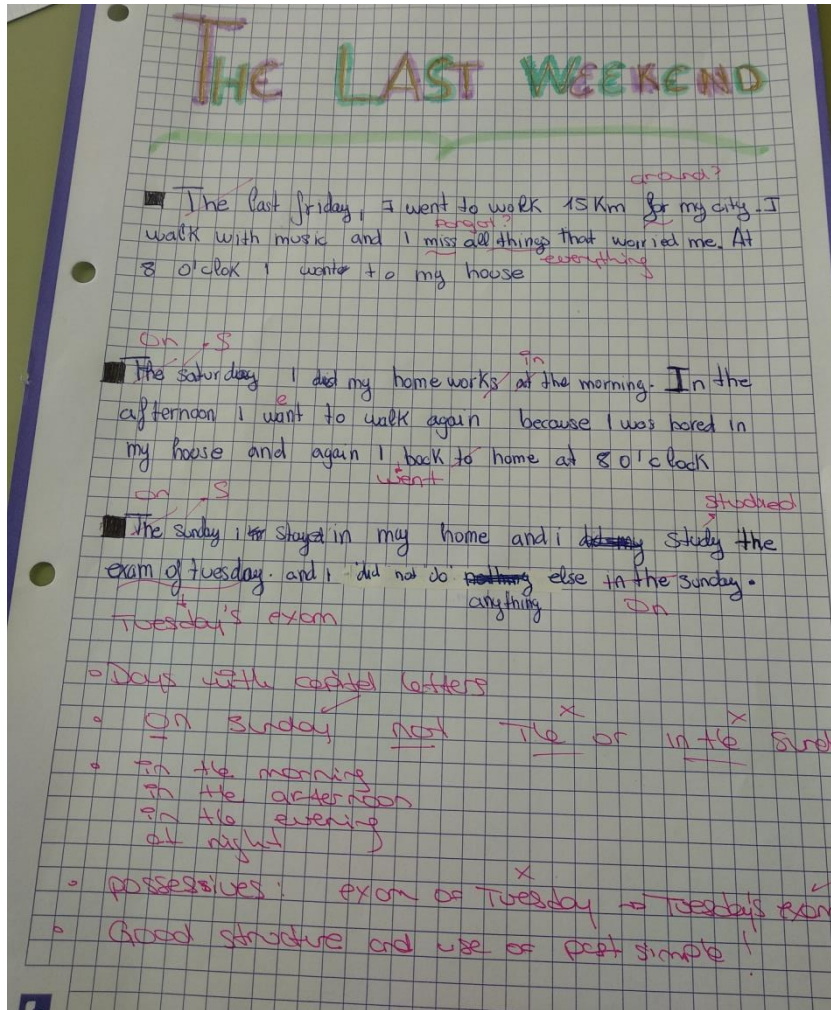 THE LAST WEEKEND
around?
The last friday, I went to work 15 Km for my city. I
forgot?
walk with music and I miss all things that worried me. At
everything
8 o'clok I wento to my house
On S
The saturday I did my home works at the morning. In the
in
e
afternoon I want to walk again because I was bored in
my house and again I back to home at 8 o'clock
went
On S
studied
The sunday i stayed in my home and i did my study the
exam of tuesday. and i did not do nothing else in the sunday.
anything On
Tuesday's exam
Days with capital letters
On Sunday not The or in the Sund
in the morning
in the afternoon
in the evening
at night
possessives: exam of Tuesday → Tuesday's exam
Good structure and use of past simple!